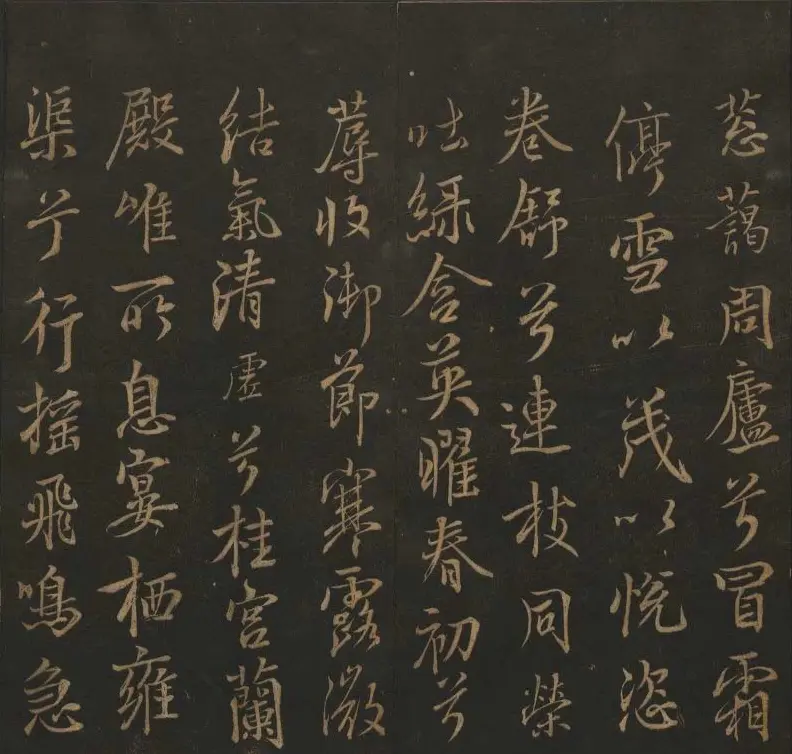 葱藹周廬兮冒霜
停雪以茂以悅恣
卷舒兮連枝同榮
吐綠含英曜春初兮
蓐收御節寒露微
結氣清虛兮桂宮蘭
殿唯所息宴栖雍
渠兮行搖飛鳴急